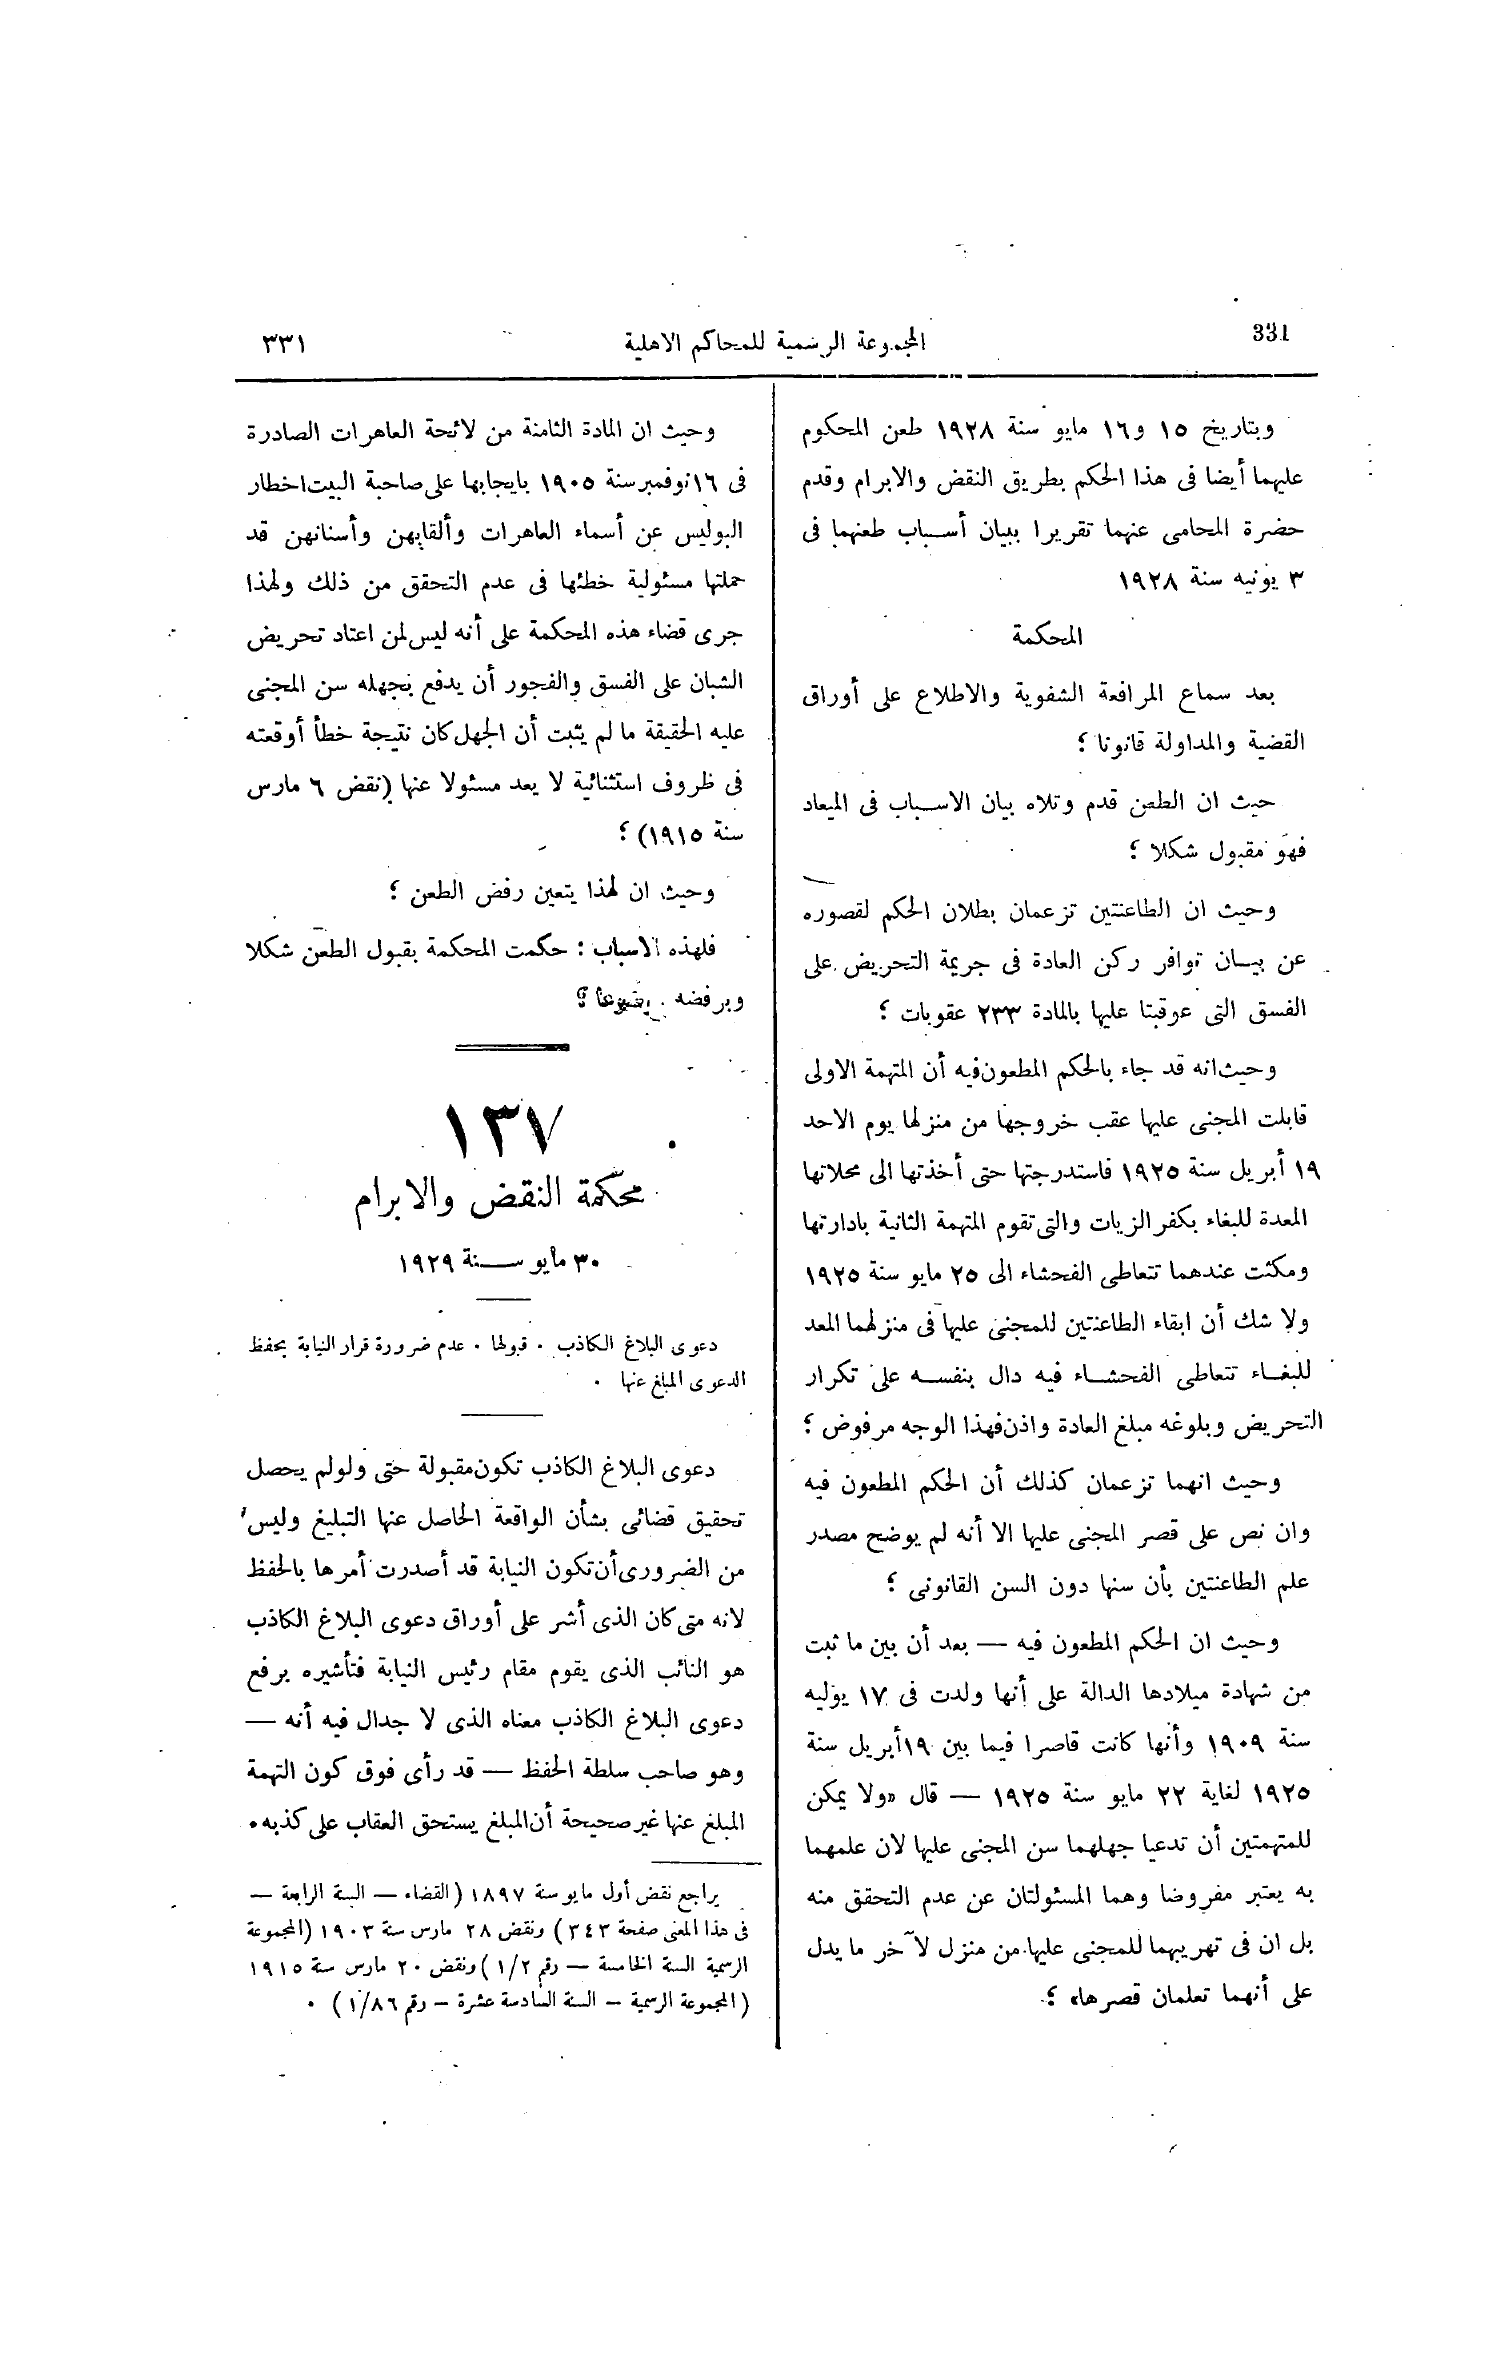 331
المجموعة الرسمية للمحاكم الاهلية
٣٣١
وبتاريخ ١٥ و١٦ مايو سنة ١٩٢٨ طعن المحكوم
عليهما أيضا فى هذا الحكم بطريق النقض والابرام وقدم
حضرة المحامى عنهما تقريرا ببيان أسباب طعنهما فى
٣ يونيه سنة ١٩٢٨
المحكمة
بعد سماع المرافعة الشفوية والاطلاع على أوراق
القضية والمداولة قانونا ؛
حيث ان الطعن قدم وتلاه بيان الاسباب فى الميعاد
فهو مقبول شكلا ؛
وحيث ان الطاعنتين تزعمان بطلان الحكم لقصوره
عن بيان توافر ركن العادة فى جريمة التحريض على
الفسق التى عوقبتا عليها بالمادة ٢٣٣ عقوبات ؛
وحيث انه قد جاء بالحكم المطعون فيه أن المتهمة الاولى
قابلت المجنى عليها عقب خروجها من منزلها يوم الاحد
١٩ أبريل سنة ١٩٢٥ فاستدرجتها حتى أخذتها الى محلاتها
المعدة للبغاء بكفر الزيات والتى تقوم المتهمة الثانية بادارتها
ومكثت عندهما تتعاطى الفحشاء الى ٢٥ مايو سنة ١٩٢٥
ولا شك أن ابقاء الطاعنتين للمجنى عليها فى منزلهما المعد
للبغاء تتعاطى الفحشاء فيه دال بنفسه على تكرار
التحريض وبلوغه مبلغ العادة واذن فهذا الوجه مرفوض ؛
وحيث انهما تزعمان كذلك أن الحكم المطعون فيه
وان نص على قصر المجنى عليها الا أنه لم يوضح مصدر
علم الطاعنتين بأن سنها دون السن القانونى ؛
وحيث ان الحكم المطعون فيه — بعد أن بين ما ثبت
من شهادة ميلادها الدالة على أنها ولدت فى ١٧ يوليه
سنة ١٩٠٩ وأنها كانت قاصرا فيما بين ١٩ أبريل سنة
١٩٢٥ لغاية ٢٢ مايو سنة ١٩٢٥ — قال «ولا يمكن
للمتهمتين أن تدعيا جهلهما سن المجنى عليها لان علمهما
به يعتبر مفروضا وهما المسئولتان عن عدم التحقق منه
بل ان فى تهريبهما للمجنى عليها من منزل لآخر ما يدل
على أنهما تعلمان قصرها» ؛
وحيث ان المادة الثامنة من لائحة العاهرات الصادرة
فى ١٦ نوفمبر سنة ١٩٠٥ بايجابها على صاحبة البيت اخطار
البوليس عن أسماء العاهرات وألقابهن وأسنانهن قد
حملتها مسئولية خطئها فى عدم التحقق من ذلك ولهذا
جرى قضاء هذه المحكمة على أنه ليس لمن اعتاد تحريض
الشبان على الفسق والفجور أن يدفع بجهله سن المجنى
عليه الحقيقة ما لم يثبت أن الجهل كان نتيجة خطأ أوقعته
فى ظروف استثنائية لا يعد مسئولا عنها (نقض ٦ مارس
سنة ١٩١٥) ؛
وحيث ان لهذا يتعين رفض الطعن ؛
فلهذه الاسباب : حكمت المحكمة بقبول الطعن شكلا
وبرفضه
١٣٧
محكمة النقض والابرام
٣٠ مايو سنة ١٩٢٩
دعوى البلاغ الكاذب . قبولها . عدم ضرورة قرار النيابة بحفظ
الدعوى المبلغ عنها .
دعوى البلاغ الكاذب تكون مقبولة حتى ولو لم يحصل
تحقيق قضائى بشأن الواقعة الحاصل عنها التبليغ وليس
من الضرورى أن تكون النيابة قد أصدرت أمرها بالحفظ
لانه متى كان الذى أشر على أوراق دعوى البلاغ الكاذب
هو النائب الذى يقوم مقام رئيس النيابة فتأشيره برفع
دعوى البلاغ الكاذب معناه الذى لا جدال فيه أنه —
وهو صاحب سلطة الحفظ — قد رأى فوق كون التهمة
المبلغ عنها غير صحيحة أن المبلغ يستحق العقاب على كذبه .
يراجع نقض أول مايو سنة ١٨٩٧ (القضاء — السنة الرابعة —
فى هذا المعنى صفحة ٣٤٣) ونقض ٢٨ مارس سنة ١٩٠٣ (المجموعة
الرسمية السنة الخامسة — رقم ١/٢) ونقض ٢٠ مارس سنة ١٩١٥
(المجموعة الرسمية — السنة السادسة عشرة — رقم ١/٨٦) .